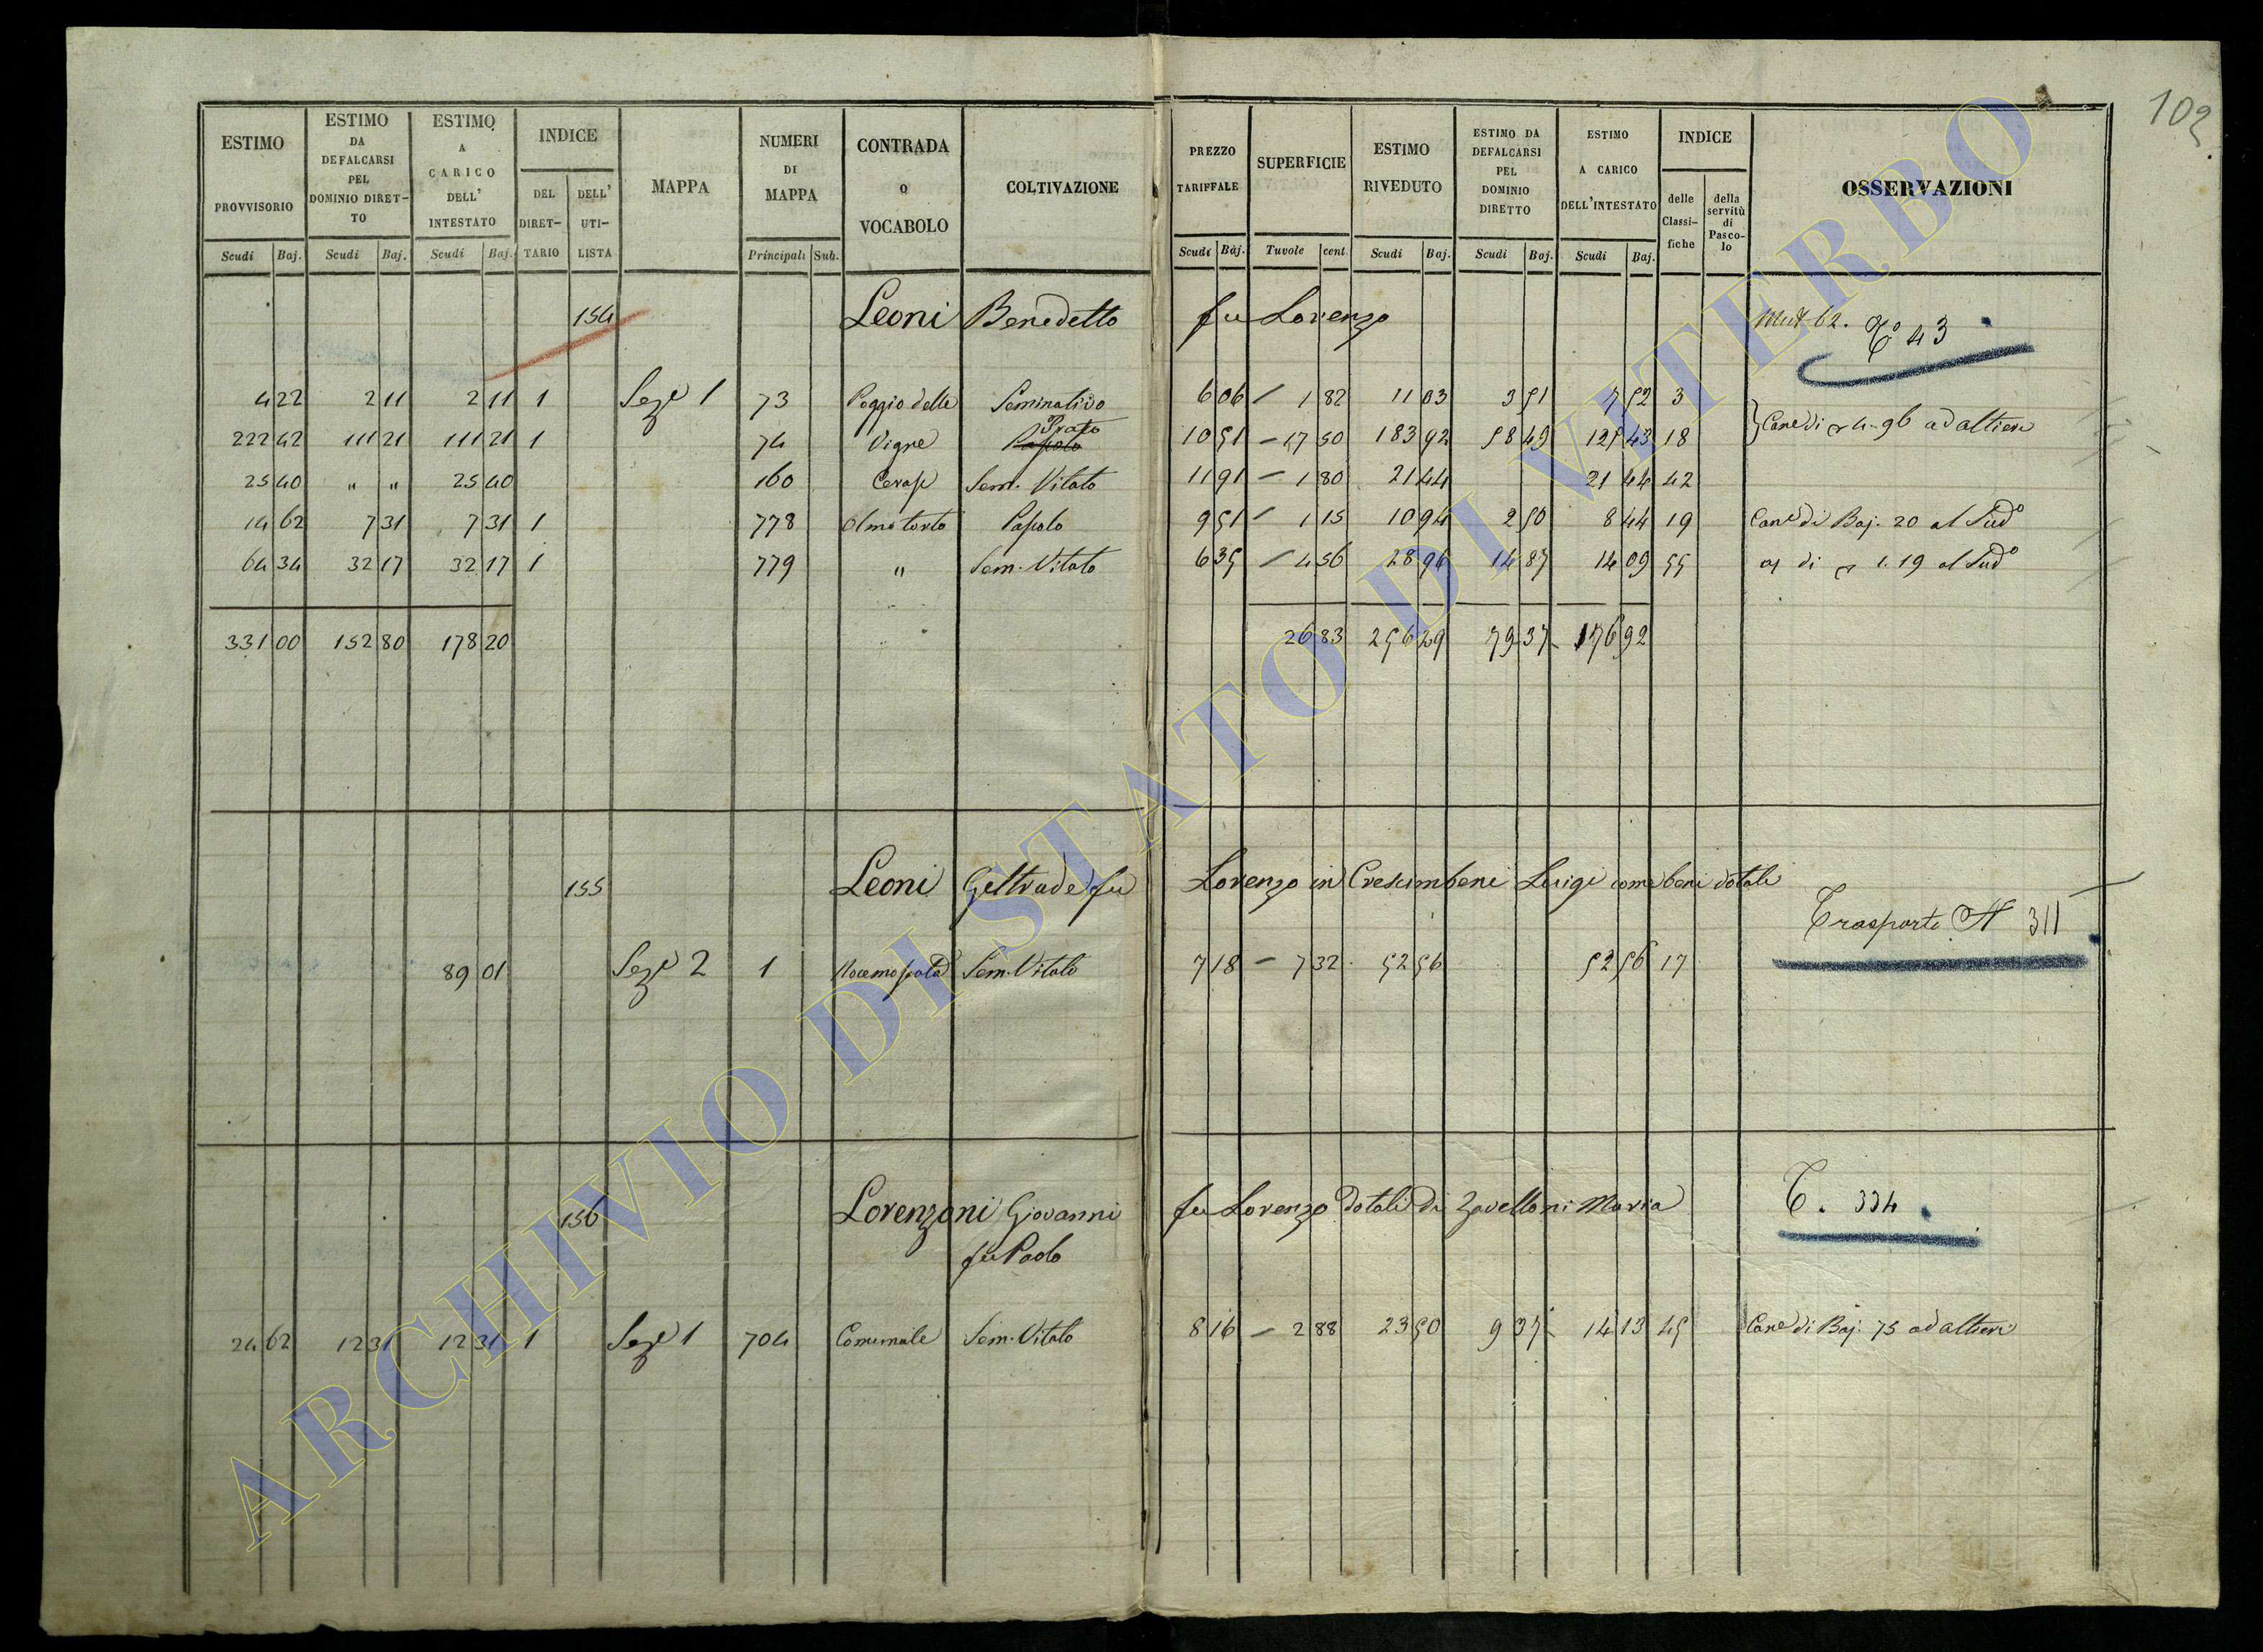 103
ESTIMO PROVVISORIO Scudi Baj.
ESTIMO DA DEFALCARSI PEL DOMINIO DIRETTO Scudi Baj.
ESTIMO A CARICO DELL' INTESTATO Scudi Baj.
INDICE DEL DIRET-TARIO DELL' UTI-LISTA
MAPPA
NUMERI DI MAPPA Principali Sub.
CONTRADA O VOCABOLO
COLTIVAZIONE
PREZZO TARIFFALE Scudi Baj.
SUPERFICIE Tavole cent.
ESTIMO RIVEDUTO Scudi Baj.
ESTIMO DA DEFALCARSI PEL DOMINIO DIRETTO Scudi Baj.
ESTIMO A CARICO DELL'INTESTATO Scudi Baj.
INDICE delle Classi-fiche della servitù di Pasco-lo
OSSERVAZIONI
154 Leoni Benedetto fu Lorenzo 62. 43
4 22 2 11 2 11 1 Sezе 1 73 Poggio delle Seminativo 6 06 – 1 82 11 03 3 51 7 52 3
Prato
222 42 111 21 111 21 1 74 Vigne 10 51 – 17 50 183 92 58 49 125 43 18 Cane di 4.96 ad altieri
25 40 " " 25 40 160 Cerase Sem. Vitato 11 91 – 1 80 21 44 21 44 42
14 62 7 31 7 31 1 778 Olmo torto Pascolo 9 51 – 1 15 10 94 2 50 8 44 19 Cane di Baj. 20 al Sudo
64 34 32 17 32 17 1 779 " Sem. Vitato 6 35 – 4 56 28 96 14 87 14 09 55 di 1.19 al Sudo
331 00 152 80 178 20 26 83 256 29 79 37 176 92
155 Leoni Geltrude fu Lorenzo in Crescimbeni Luigi come beni dotali
Trasporto N 311
89 01 Seze 2 1 Sem. Vitato 7 18 – 7 32 52 56 52 56 17
156 Lorenzoni Giovanni fu Lorenzo dotali di Zavelloni Maria T. 334
fu Paolo
24 62 12 31 12 31 1 Seze 1 704 Comunale Sem. Vitato 8 16 – 2 88 23 50 9 37 14 13 45 Cane di Baj. 75 ad altieri
ARCHIVIO DI STATO DI VITERBO